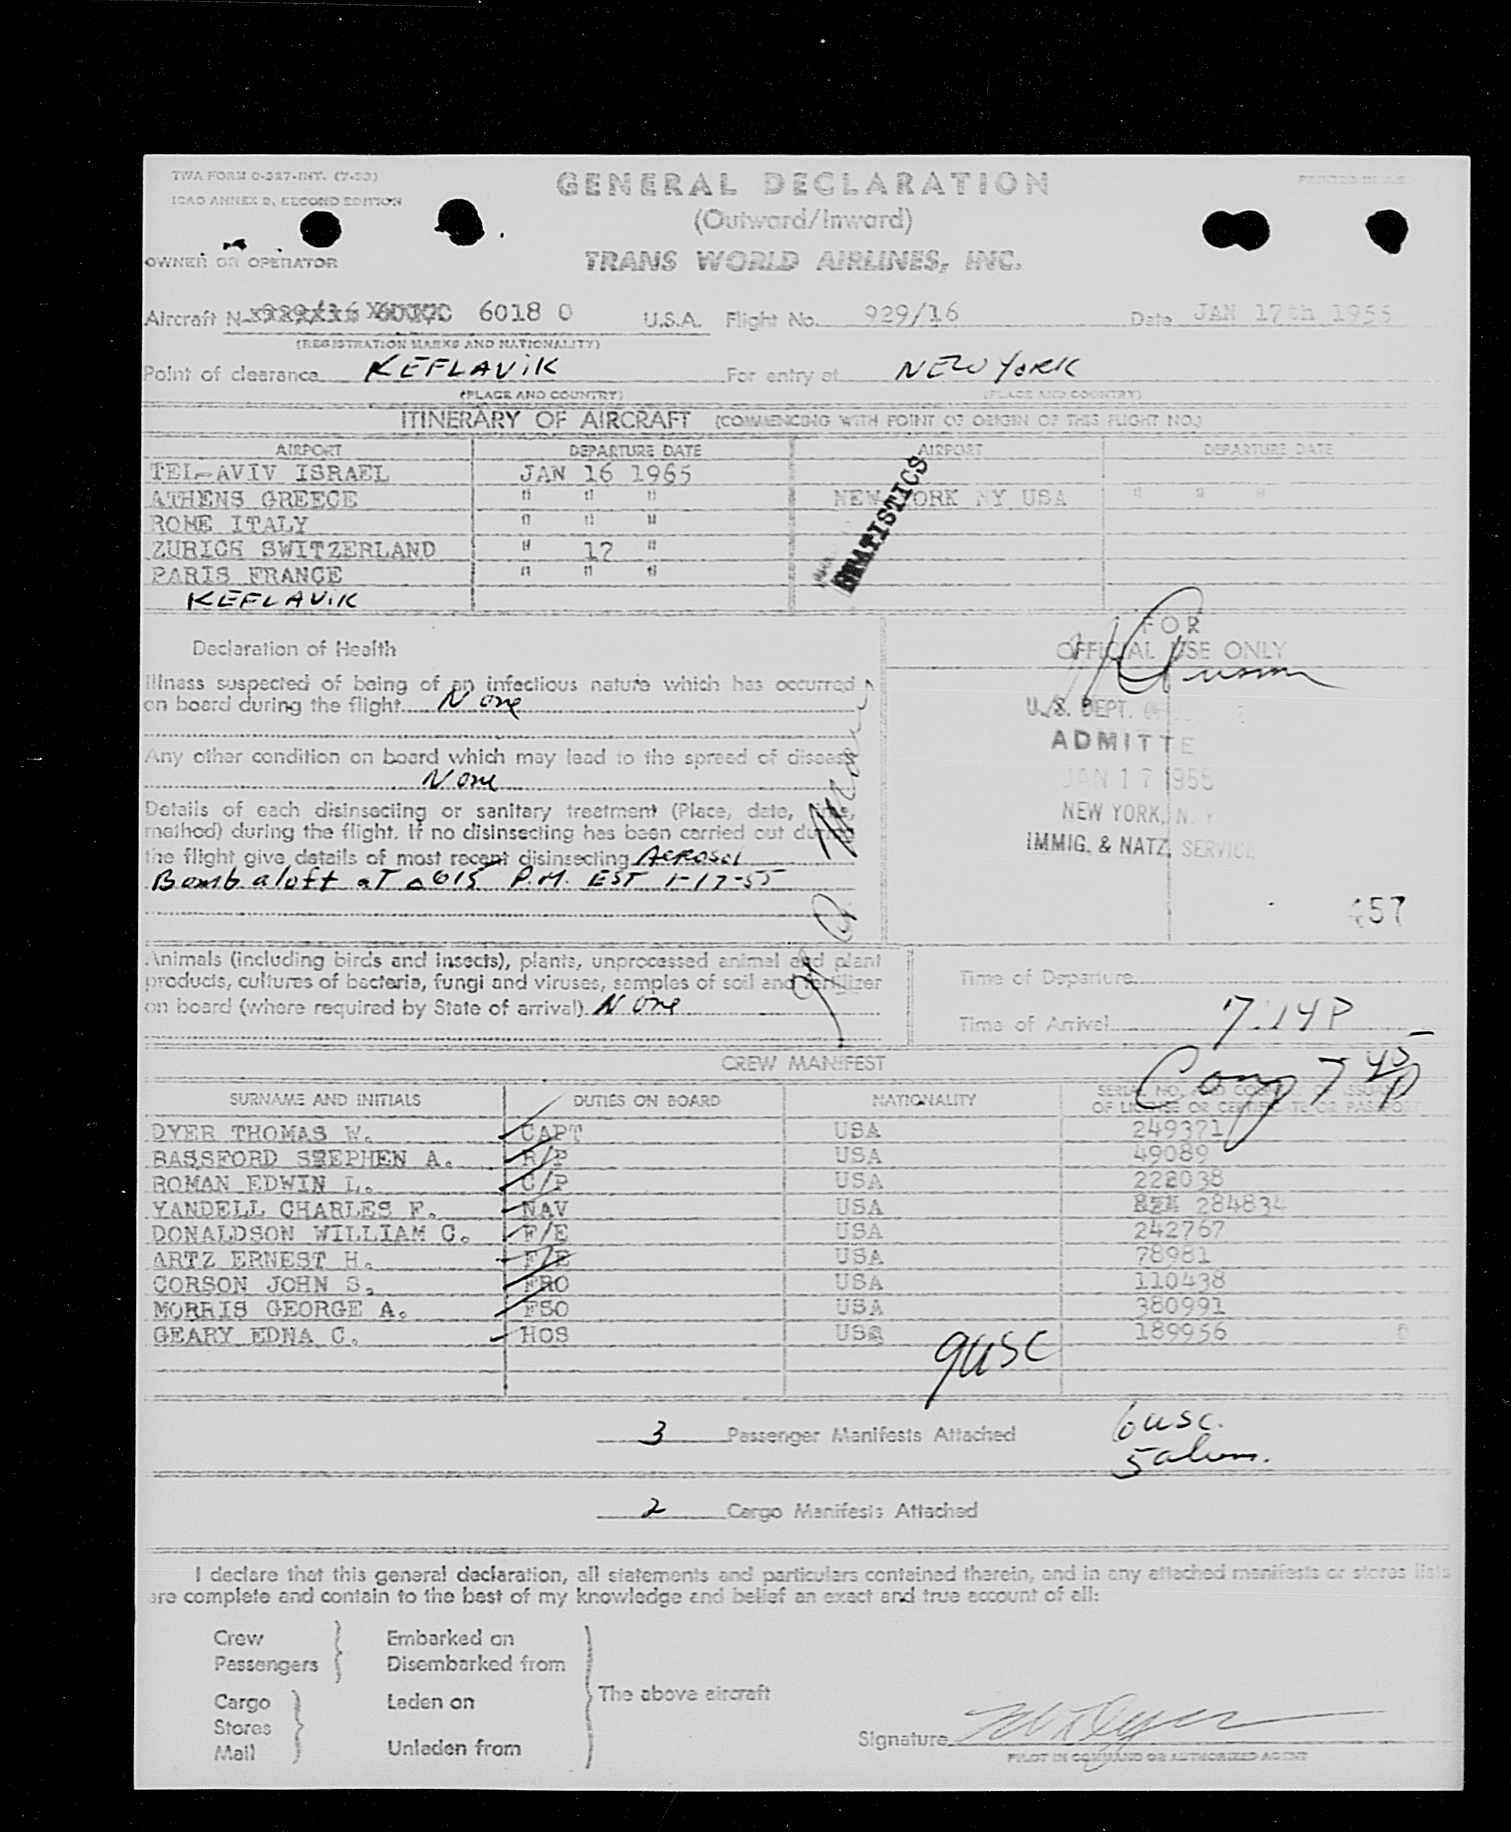 TWA FORM O-327-INT. (7-53)
ICAO ANNEX 9, SECOND EDITION
PRINTED IN U.S.
GENERAL DECLARATION
(Outward/Inward)
OWNER OR OPERATOR
TRANS WORLD AIRLINES, INC.
Aircraft N 6018 0 U.S.A. Flight No. 929/16 Date JAN 17th 1955
(REGISTRATION MARKS AND NATIONALITY)
Point of clearance KEFLAVIK For entry at NEW YORK
(PLACE AND COUNTRY) (PLACE AND COUNTRY)
ITINERARY OF AIRCRAFT (COMMENCING WITH POINT OF ORIGIN OF THIS FLIGHT NO.)
AIRPORT DEPARTURE DATE AIRPORT DEPARTURE DATE
TEL-AVIV ISRAEL JAN 16 1965
ATHENS GREECE " " " NEW YORK NY USA " " "
ROME ITALY " " "
ZURICH SWITZERLAND " 17 "
PARIS FRANCE " " "
KEFLAVIK
STATISTICS
Declaration of Health
FOR
OFFICIAL USE ONLY
Illness suspected of being of an infectious nature which has occurred
on board during the flight None
U.S. DEPT.
ADMITTE
JAN 17 1955
NEW YORK, N. Y.
IMMIG. & NATZ. SERVICE
Any other condition on board which may lead to the spread of disease
None
Details of each disinsecting or sanitary treatment (Place, date, time,
method) during the flight. If no disinsecting has been carried out during
the flight give details of most recent disinsecting Aerosol
Bomb aloft aT 0615 P.M. EST 1-17-55
457
Animals (including birds and insects), plants, unprocessed animal and plant
products, cultures of bacteria, fungi and viruses, samples of soil and fertilizer
on board (where required by State of arrival) None
Time of Departure
Time of Arrival 7:14P
7 45 P
CREW MANIFEST
SURNAME AND INITIALS DUTIES ON BOARD NATIONALITY SERIAL NO. AND COUNTRY OF ISSUANCE
OF LICENSE OR CERTIFICATE OR PASSPORT
DYER THOMAS W. CAPT USA 249371
BASSFORD STEPHEN A. R/P USA 49089
ROMAN EDWIN L. C/P USA 222038
YANDELL CHARLES F. NAV USA 284834
DONALDSON WILLIAM C. F/E USA 242767
ARTZ ERNEST H. F/E USA 78981
CORSON JOHN S. FRO USA 110438
MORRIS GEORGE A. FSO USA 380991
GEARY EDNA C. HOS USA 189956
9USC
3 Passenger Manifests Attached
6 USC.
5 alien.
2 Cargo Manifests Attached
I declare that this general declaration, all statements and particulars contained therein, and in any attached manifests or stores lists
are complete and contain to the best of my knowledge and belief an exact and true account of all:
Crew Embarked on
Passengers Disembarked from
The above aircraft
Cargo Laden on
Stores
Mail Unladen from
Signature TW Dyer
PILOT IN COMMAND OR AUTHORIZED AGENT